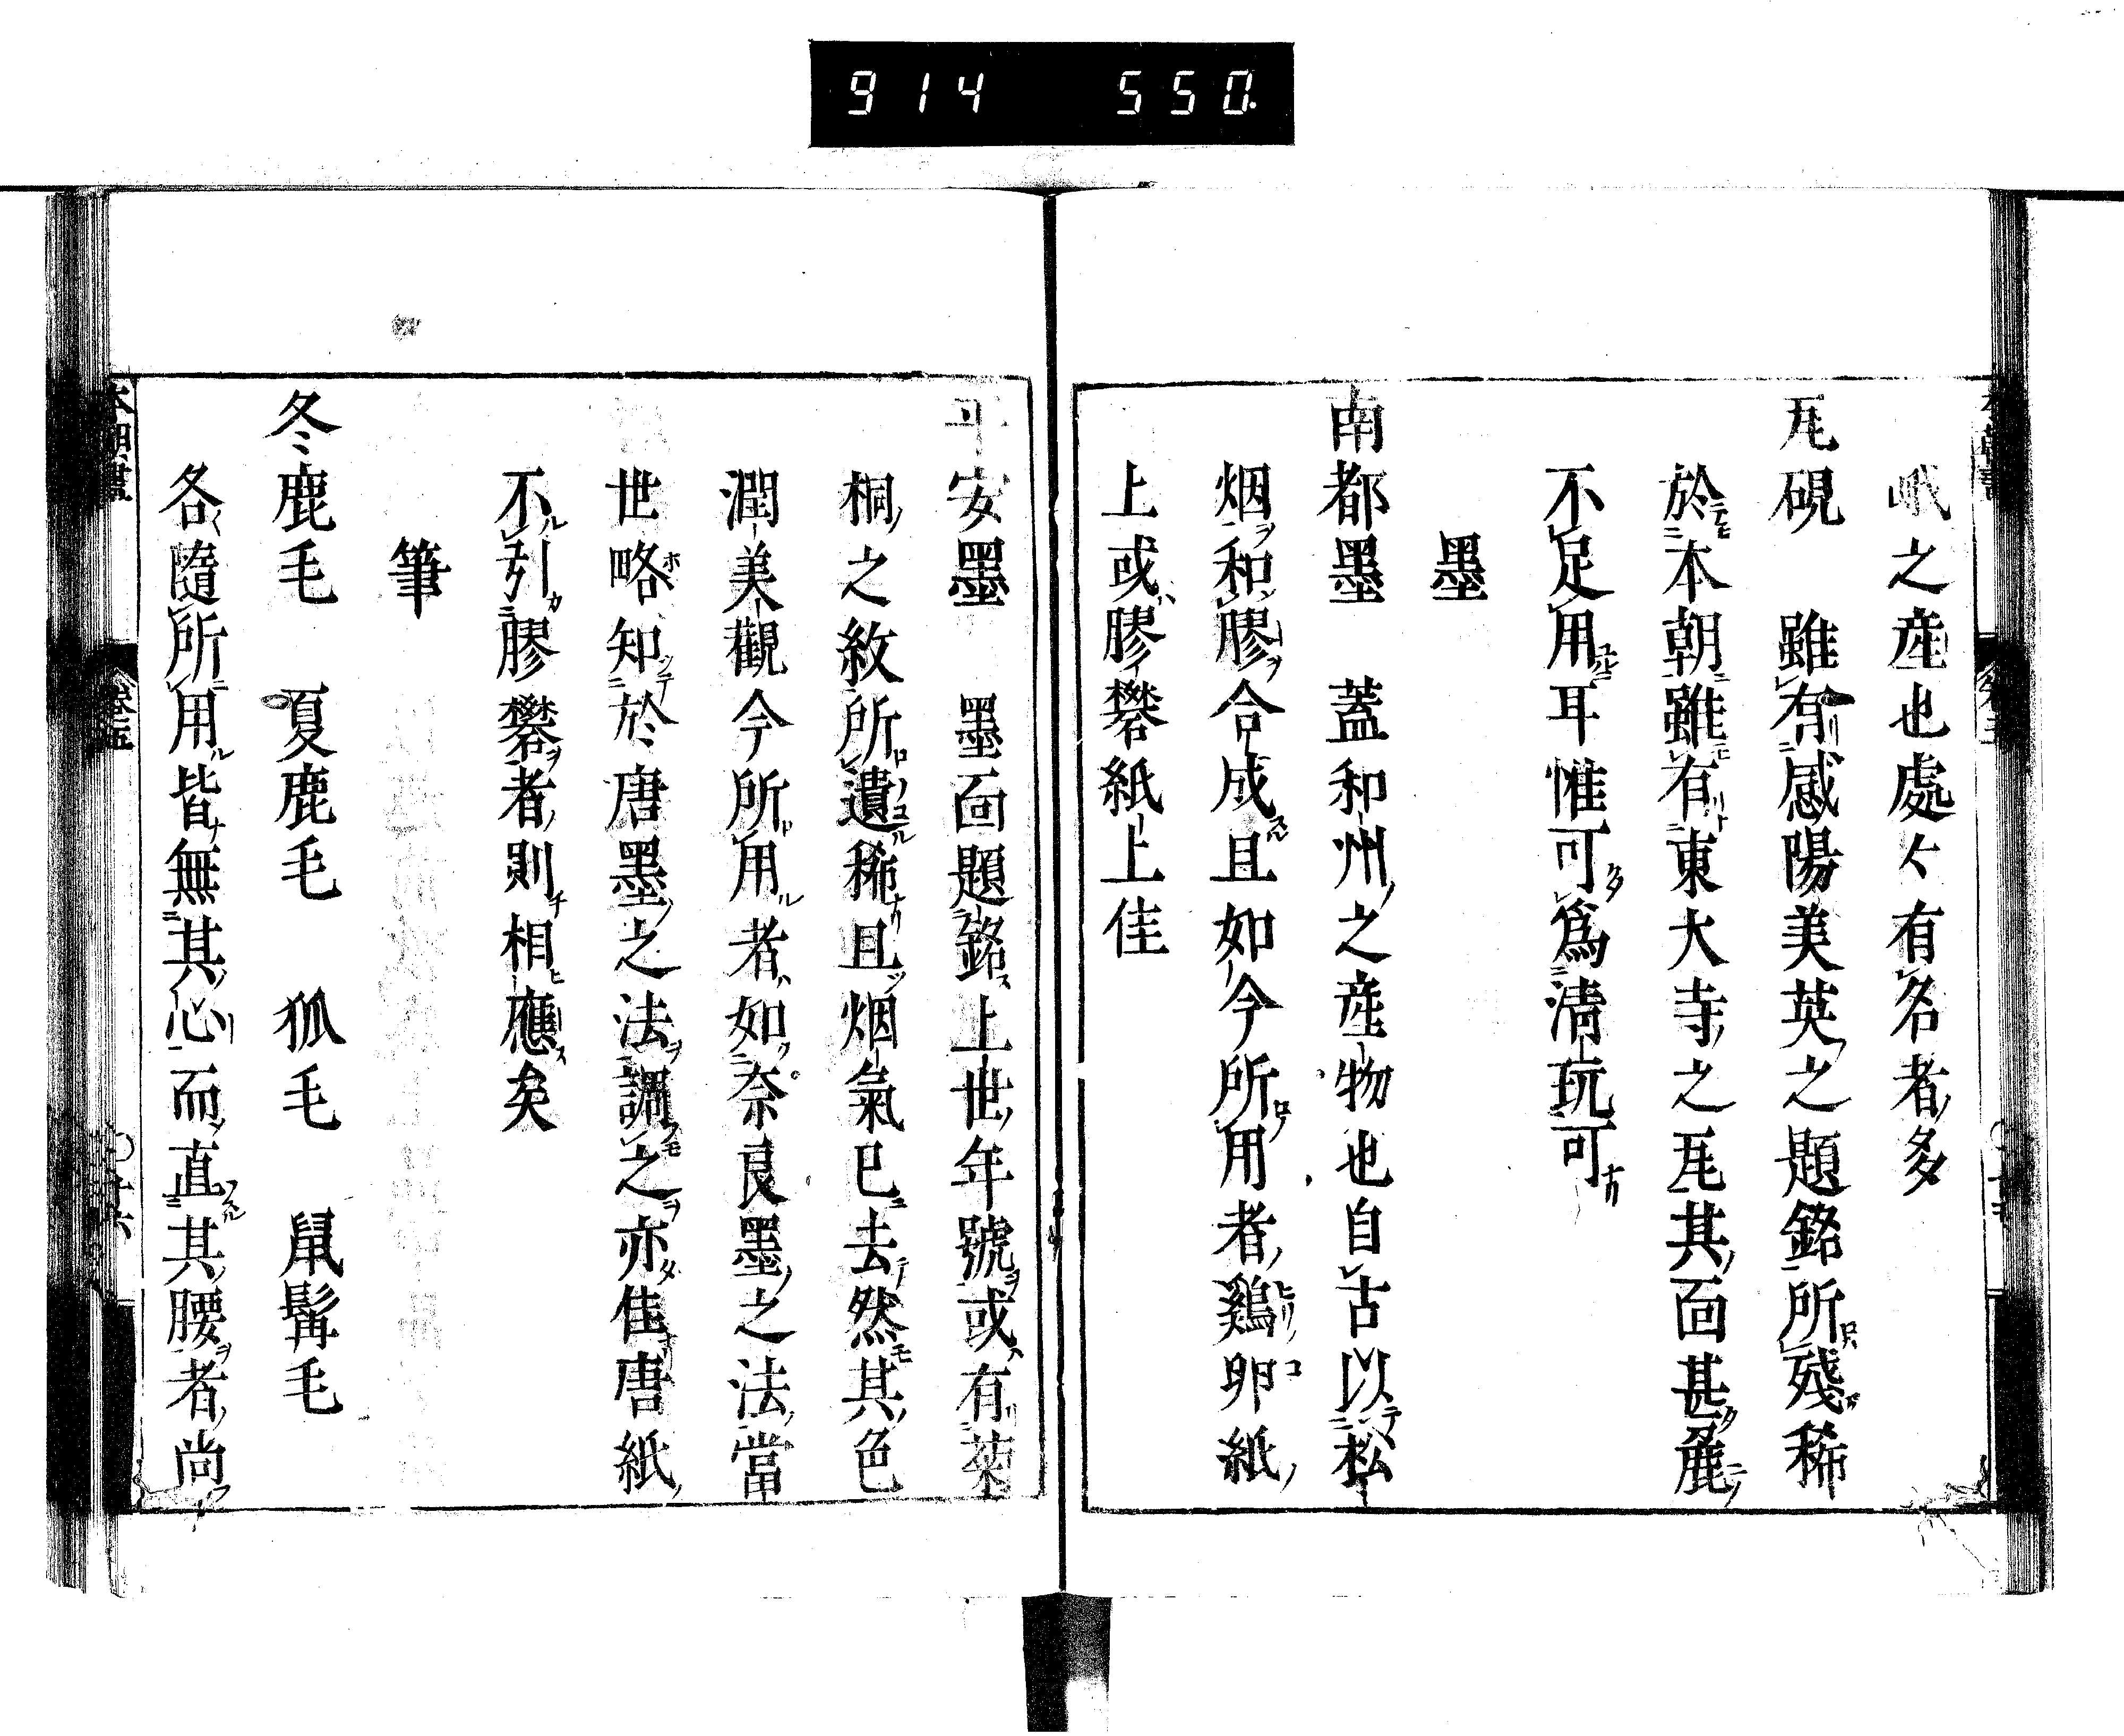 914 550
峨之産也處々有名者多
瓦硯 雖有感陽美英之題銘所殘稀
於本朝雖有東大寺之瓦其面甚麁
不足用耳惟可爲清玩可
墨
南都墨 蓋和州之産物也自古以松
烟和膠合成且如今所用者鷄卵紙
上或膠礬紙上佳
平安墨 墨面題銘上世年號或有菊
桐之紋所遺稀且烟氣已去然其色
潤美觀今所用者如奈良墨之法當
世略知於唐墨之法調之亦佳唐紙
不引膠礬者則相應矣
筆
冬鹿毛 夏鹿毛 狐毛 鼠髯毛
各隨所用皆無其心而直其腰者尚